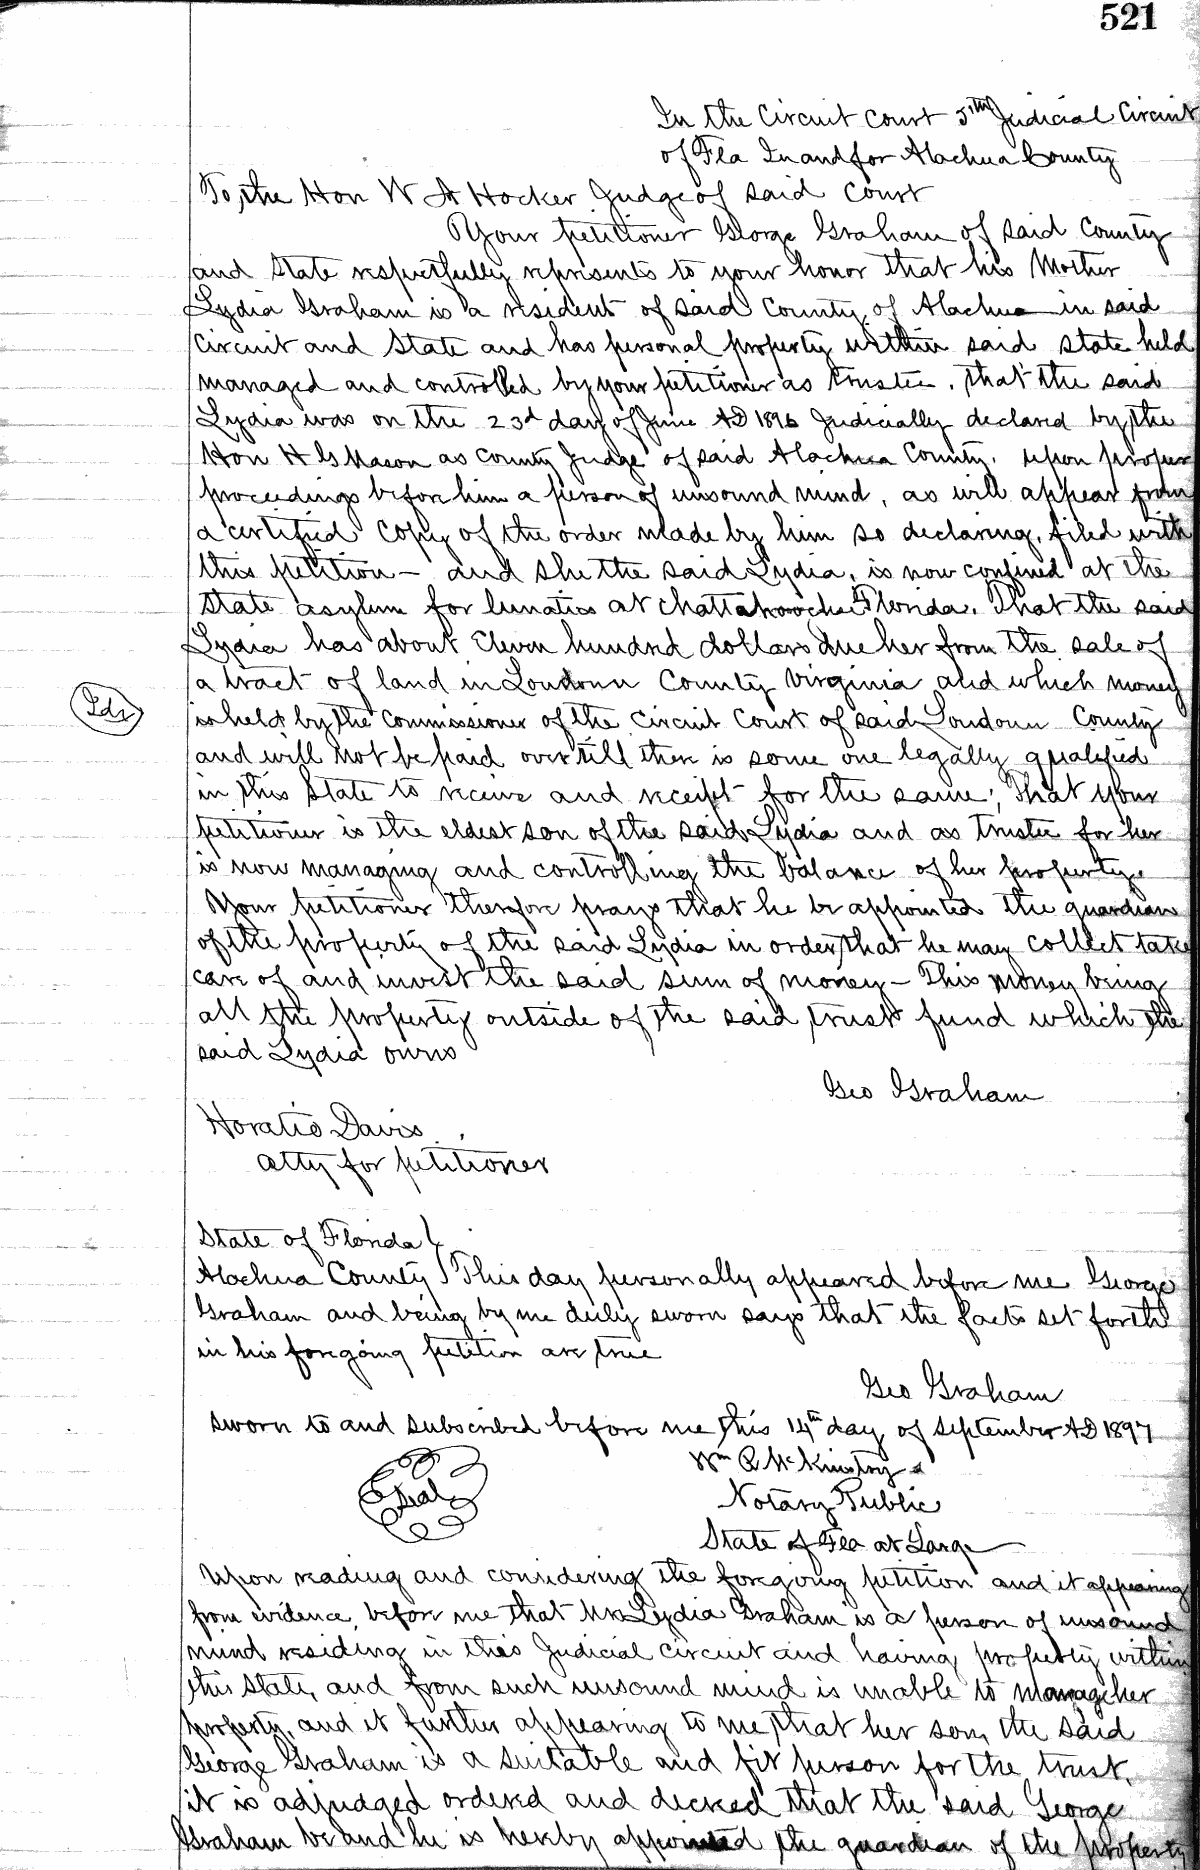 521
In the Circuit Court 5th Judicial Circuit
of Fla In and for Alachua County
To, the Hon W A Hocker Judge of said Court
Your petitioner George Graham of said County
and State respectfully represents to your honor that his Mother
Lydia Graham is a resident of said County of Alachua in said
Circuit and State and has personal property within said state held
managed and controlled by your petitioner as trustee, that the said
Lydia was on the 23d day of June AD 1896 Judicially declared by the
Hon H G Mason as County Judge of said Alachua County, upon proper
proceedings before him a person of unsound mind, as will appear from
a certified copy of the order made by him so declaring, filed with
this petition — and she the said Lydia, is now confined at the
State asylum for lunatics at Chattahoochee Florida. That the said
Lydia has about Eleven hundred dollars due her from the sale of
a tract of land in Loudoun County Virginia and which money
is held by the Commissioner of the Circuit Court of said Loudoun County
and will not be paid over till there is some one legally qualified
in this State to receive and receipt for the same; That your
petitioner is the eldest son of the said Lydia and as trustee for her
is now managing and controlling the balance of her property.
Your petitioner therefore prays that he be appointed the guardian
of the property of the said Lydia in order that he may collect take
care of and invest the said sum of money — This money being
all the property outside of the said trust fund which the
said Lydia owns
Geo Graham
Horatio Davis
atty for petitioner
State of Florida
Alachua County This day personally appeared before me George
Graham and being by me duly sworn says that the facts set forth
in his foregoing petition are true
Geo Graham
Sworn to and subscribed before me this 14th day of September AD 1897
Seal
Wm R McKinstry
Notary Public
State of Fla at Large
Upon reading and considering the foregoing petition and it appearing
from evidence before me that Mrs Lydia Graham is a person of unsound
mind residing in this Judicial Circuit and having property within
this State, and from such unsound mind is unable to manage her
property, and it further appearing to me that her son, the said
George Graham is a suitable and fit person for the trust,
it is adjudged ordered and decreed that the said George
Graham be and he is hereby appointed the guardian of the property